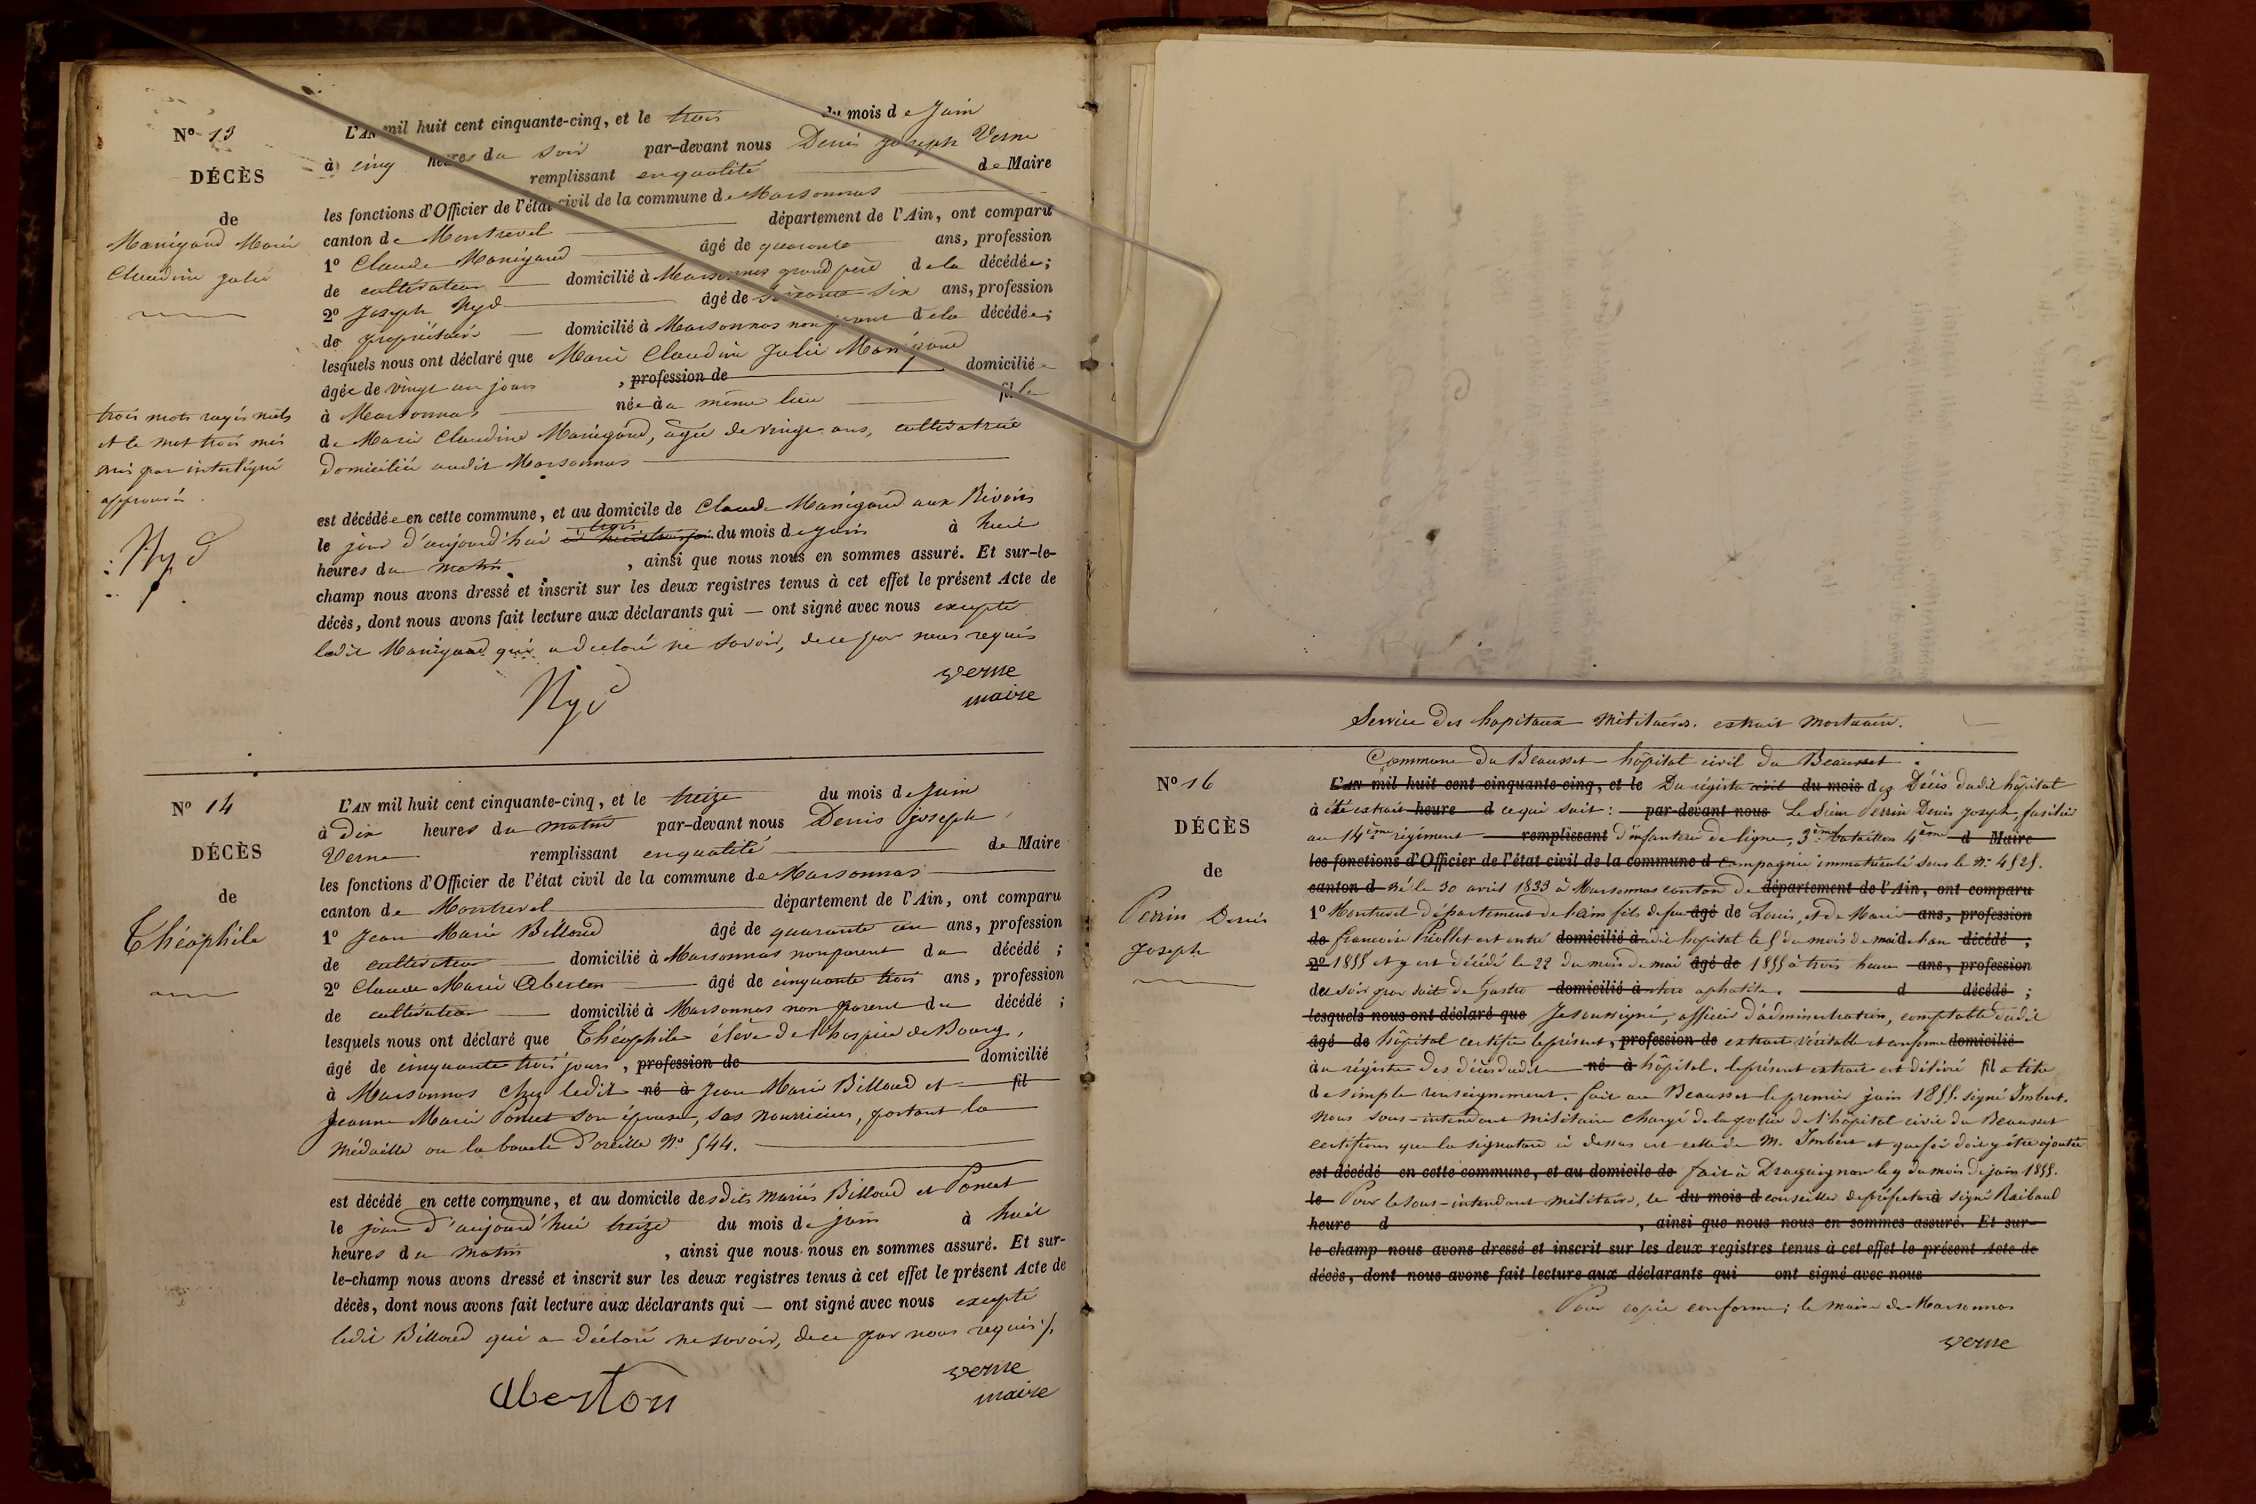 N° 13
DÉCÈS
de
Manigand Marie
Claudine Julie
trois mots rayés nuls
et le mot trois mis
mis par interligne
approuvés.
Nyd
L'AN mil huit cent cinquante-cinq, et le trois du mois de Juin
à cinq heures du soir par-devant nous Denis Joseph Verne
remplissant en qualité de Maire
les fonctions d'Officier de l'état civil de la commune de Marsonnas
canton de Montrevel département de l'Ain, ont comparu
1° Claude Manigand âgé de quarante ans, profession
de cultivateur domicilié à Marsonnas grand père de la décédée;
2° Joseph Nyd âgé de soixante six ans, profession
de propriétaire domicilié à Marsonnas non parent de la décédée;
lesquels nous ont déclaré que Marie Claudine Julie Manigand
âgée de vingt un jours , profession de domiciliée
à Marsonnas née au même lieu fille
de Marie Claudine Manigand, âgée de vingt ans, cultivatrice
domiciliée audit Marsonnas
est décédée en cette commune, et au domicile de Claude Manigand aux Rivoirs
le jour d'aujourd'hui trois du mois de juin à huit
heures du matin , ainsi que nous nous en sommes assuré. Et sur-le-
champ nous avons dressé et inscrit sur les deux registres tenus à cet effet le présent Acte de
décès, dont nous avons fait lecture aux déclarants qui — ont signé avec nous excepté
ledit Manigand qui a déclaré ne savoir, de ce par nous requis
Nyd
verne
maire
N° 14
DÉCÈS
de
Théophile
L'AN mil huit cent cinquante-cinq, et le treize du mois de Juin
à dix heures du matin par-devant nous Denis Joseph
Verne remplissant en qualité de Maire
les fonctions d'Officier de l'état civil de la commune de Marsonnas
canton de Montrevel département de l'Ain, ont comparu
1° Jean Marie Billoud âgé de quarante un ans, profession
de cultivateur domicilié à Marsonnas non parent du décédé ;
2° Claude Marie Aberton âgé de cinquante trois ans, profession
de cultivateur domicilié à Marsonnas non parent du décédé ;
lesquels nous ont déclaré que Théophile élève de l'hospice de Bourg,
âgé de cinquante trois jours, profession de domicilié
à Marsonnas chez ledit né à Jean Marie Billoud et fil
Jeanne Marie Poncet son épouse, ses nourriciers, portant la
médaille ou la boucle d'oreille N° 544.
est décédé en cette commune, et au domicile desdits mariés Billoud et Poncet
le jour d'aujourd'hui treize du mois de juin à huit
heures du matin , ainsi que nous nous en sommes assuré. Et sur-
le-champ nous avons dressé et inscrit sur les deux registres tenus à cet effet le présent Acte de
décès, dont nous avons fait lecture aux déclarants qui — ont signé avec nous excepté
ledit Billoud qui a déclaré ne savoir, de ce par nous requis
Aberton
verne
maire
Service des hopitaux militaires. extrait mortuaire.
Commune du Beausset hôpital civil du Beausset
N° 16
DÉCÈS
de
Perrin Denis
Joseph
L'AN mil huit cent cinquante-cinq, et le Du régistre civil du mois des Décès dudit hôpital
à été extrait heure d ce qui suit : par-devant nous Le Sieur Perrin Denis Joseph, fusilier
au 14ème régiment remplissant d'infanterie de ligne, 3ème bataillon 4ème d Maire
les fonctions d'Officier de l'état civil de la commune d Compagnie immatriculé sous le N° 4525.
canton d né le 30 avril 1833 à Marsonnas canton de département de l'Ain, ont comparu
1° Montrevel département de l'ain fils de feu âgé de Louis, et de Marie ans, profession
de francoise Préollet est entré domicilié à audit hopital le 5 du mois de mai de l'an décédé ;
2° 1855 et y est décédé le 22 du mois de mai âgé de 1855 à trois heures ans, profession
de du soir par suite de Gastro domicilié à d décédé ;
lesquels nous ont déclaré que Je soussigné, officier d'administration, comptable dudit
âgé de hôpital certifie le présent, profession de extrait véritable et conforme domicilié
à au régistre des décès dudit né à hôpital. le présent extrait est délivré fil à titre
de simple renseignement. fait au Beausset le premier juin 1855. signé Imbert.
Nous sous-intendant militaire chargé de la police de l'hôpital civil du Beausset
certifions que la signature ci dessus est celle de M. Imbert et que foi doit y être ajoutée
est décédé en cette commune, et au domicile de fait à Draguignan le 9 du mois de juin 1855.
le Pour le sous-intendant militaire, le du mois d conseiller de préfecture à signé Raibaud
heure d , ainsi que nous nous en sommes assuré. Et sur-
le-champ nous avons dressé et inscrit sur les deux registres tenus à cet effet le présent Acte de
décès, dont nous avons fait lecture aux déclarants qui ont signé avec nous
Pour copie conforme ; le maire de Marsonnas
verne